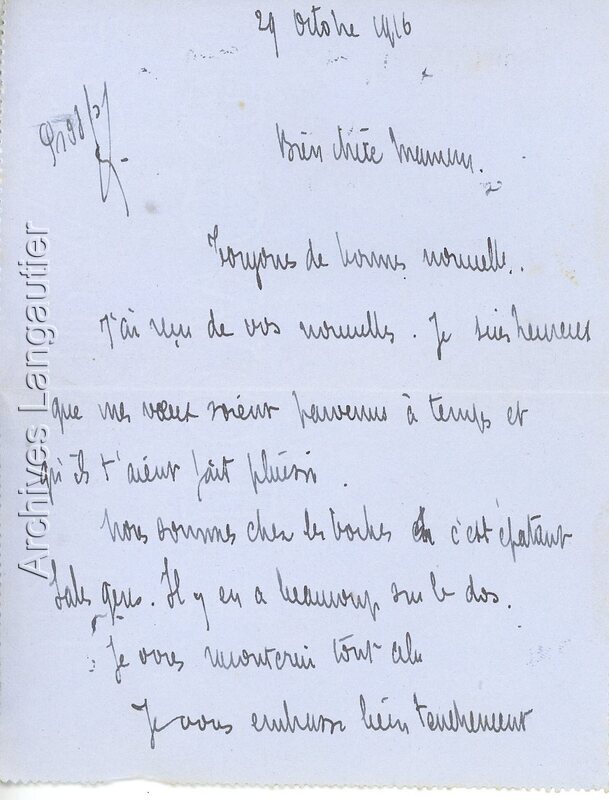 29 Octobre 1916
Bien chère Maman.
Toujours de bonnes nouvelle..
J'ai reçu de vos nouvelles. Je suis heureux
que mes vœux soient parvenus à temps et
qu'ils t'aient fait plaisir.
Nous sommes chez les boches c'est épatant
Sales gens. Il y en a beaucoup sur le dos.
Je vous raconterai tout cela
Je vous embrasse bien tendrement
Archives Langautier